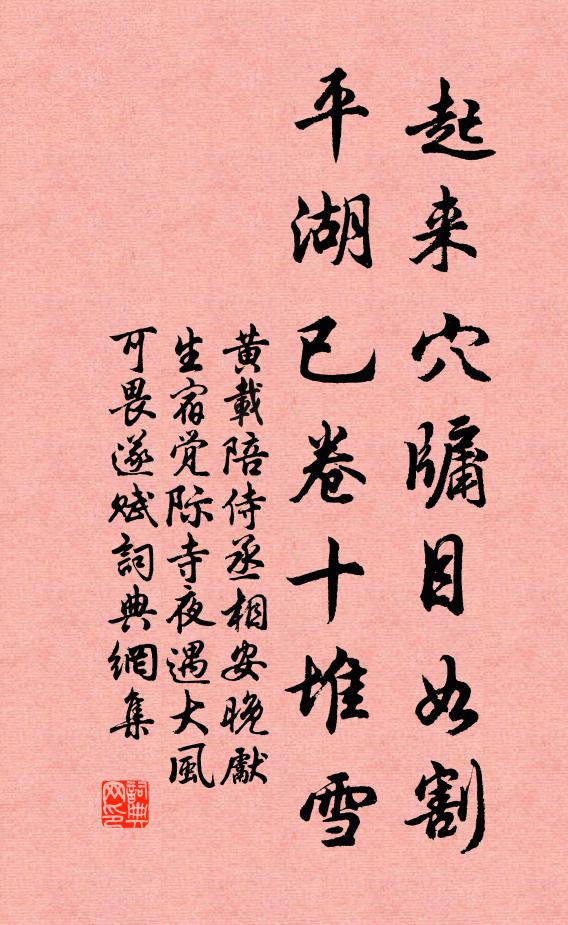 起来穴牖目如割
平湖已卷十堆雪
黄載陪侍丞相安晚獻
生宿觉际寺夜遇大風
可畏遂赋詞典網集
詞典网印